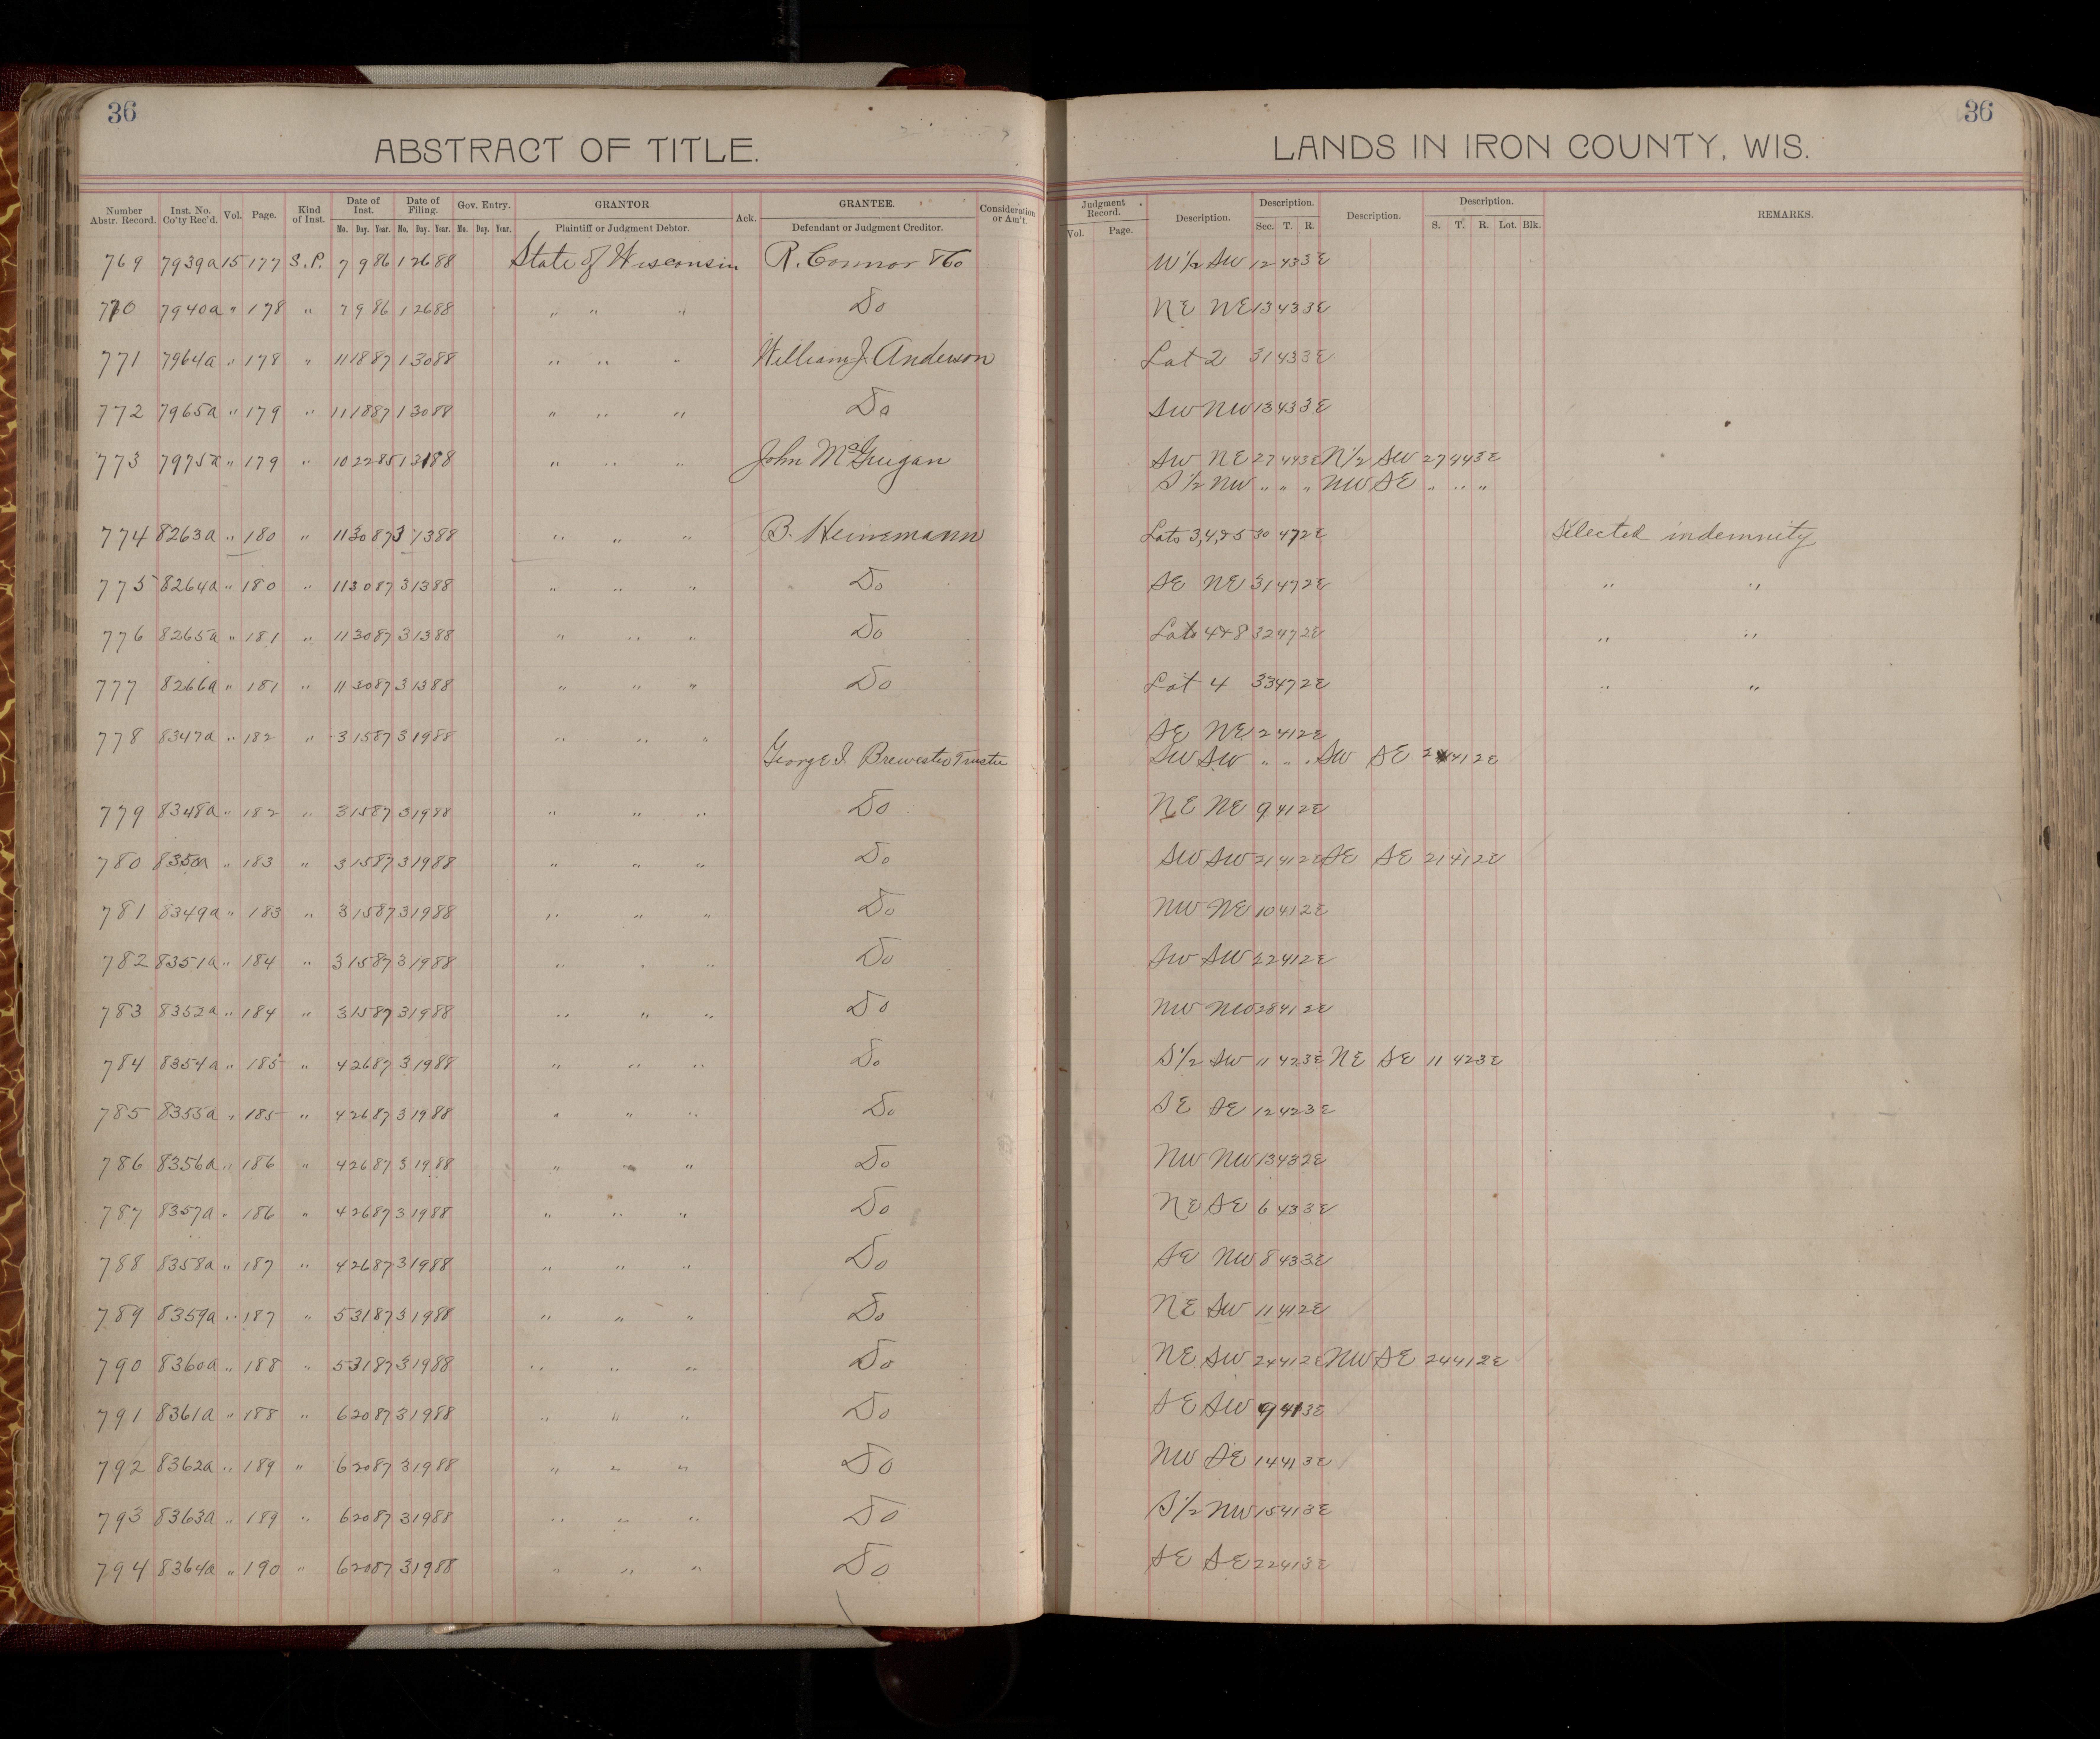 36
36
ABSTRACT OF TITLE.
LANDS IN IRON COUNTY, WIS.
Number Abstr. Record. Inst. No. Co'ty Rec'd. Vol. Page. Kind of Inst. Date of Inst. Date of Filing. Gov. Entry. GRANTOR Ack. GRANTEE. Consideration or Am't. Judgment Record. Description. Description. Description. Description. REMARKS.
Mo. Day. Year. Mo. Day. Year. Mo. Day. Year. Plaintiff or Judgment Debtor. Defendant or Judgment Creditor. Vol. Page. Sec. T. R. S. T. R. Lot. Blk.
769 7939a 15 177 S.P. 7 9 86 1 26 88 State of Wisconsin R. Connor & Co W 1/2 SW 12 43 3E
770 7940a " 178 " 7 9 86 1 26 88 " " " Do NE NE 13 43 3E
771 7964a " 178 " 11 18 87 1 30 88 " " " William J. Anderson Lot 2 31 43 3E
772 7965a " 179 " 11 18 87 1 30 88 " " " Do SW NW 13 43 3E
773 7975a " 179 " 10 22 85 1 31 88 " " " John McGuigan SW NE 27 44 3E N 1/2 SW 27 44 3E
S 1/2 NW " " " NW SE " " "
774 8263a " 180 " 11 30 87 3 13 88 " " " B. Heinemann Lots 3,4,&5 30 47 2E Selected indemnity
775 8264a " 180 " 11 30 87 3 13 88 " " " Do SE NE 31 47 2E " "
776 8265a " 181 " 11 30 87 3 13 88 " " " Do Lots 4&8 32 47 2E " "
777 8266a " 181 " 11 30 87 3 13 88 " " " Do Lot 4 33 47 2E " "
778 8347a " 182 " 3 15 87 3 19 88 " " " SE NE 2 41 2E
George S. Brewster Trustee SW SW " " " SW SE 2 41 2E
779 8348a " 182 " 3 15 87 3 19 88 " " " Do NE NE 9 41 2E
780 8350a " 183 " 3 15 87 3 19 88 " " " Do SW SW 21 41 2E SE SE 21 41 2E
781 8349a " 183 " 3 15 87 3 19 88 " " " Do NW NE 10 41 2E
782 8351a " 184 " 3 15 87 3 19 88 " " " Do SW SW 22 41 2E
783 8352a " 184 " 3 15 87 3 19 88 " " " Do NW NW 28 41 2E
784 8354a " 185 " 4 26 87 3 19 88 " " " Do S 1/2 SW 11 42 3E NE SE 11 42 3E
785 8355a " 185 " 4 26 87 3 19 88 " " " Do SE SE 12 42 3E
786 8356a " 186 " 4 26 87 3 19 88 " " " Do NW NW 13 43 2E
787 8357a " 186 " 4 26 87 3 19 88 " " " Do NE SE 6 43 3E
788 8358a " 187 " 4 26 87 3 19 88 " " " Do SE NW 8 43 3E
789 8359a " 187 " 5 31 87 3 19 88 " " " Do NE SW 11 41 2E
790 8360a " 188 " 5 31 87 3 19 88 " " " Do NE SW 24 41 2E NW SE 24 41 2E
791 8361a " 188 " 6 20 87 3 19 88 " " " Do SE SW 9 41 3E
792 8362a " 189 " 6 20 87 3 19 88 " " " Do NW SE 14 41 3E
793 8363a " 189 " 6 20 87 3 19 88 " " " Do S 1/2 NW 15 41 3E
794 8364a " 190 " 6 20 87 3 19 88 " " " Do SE SE 22 41 3E